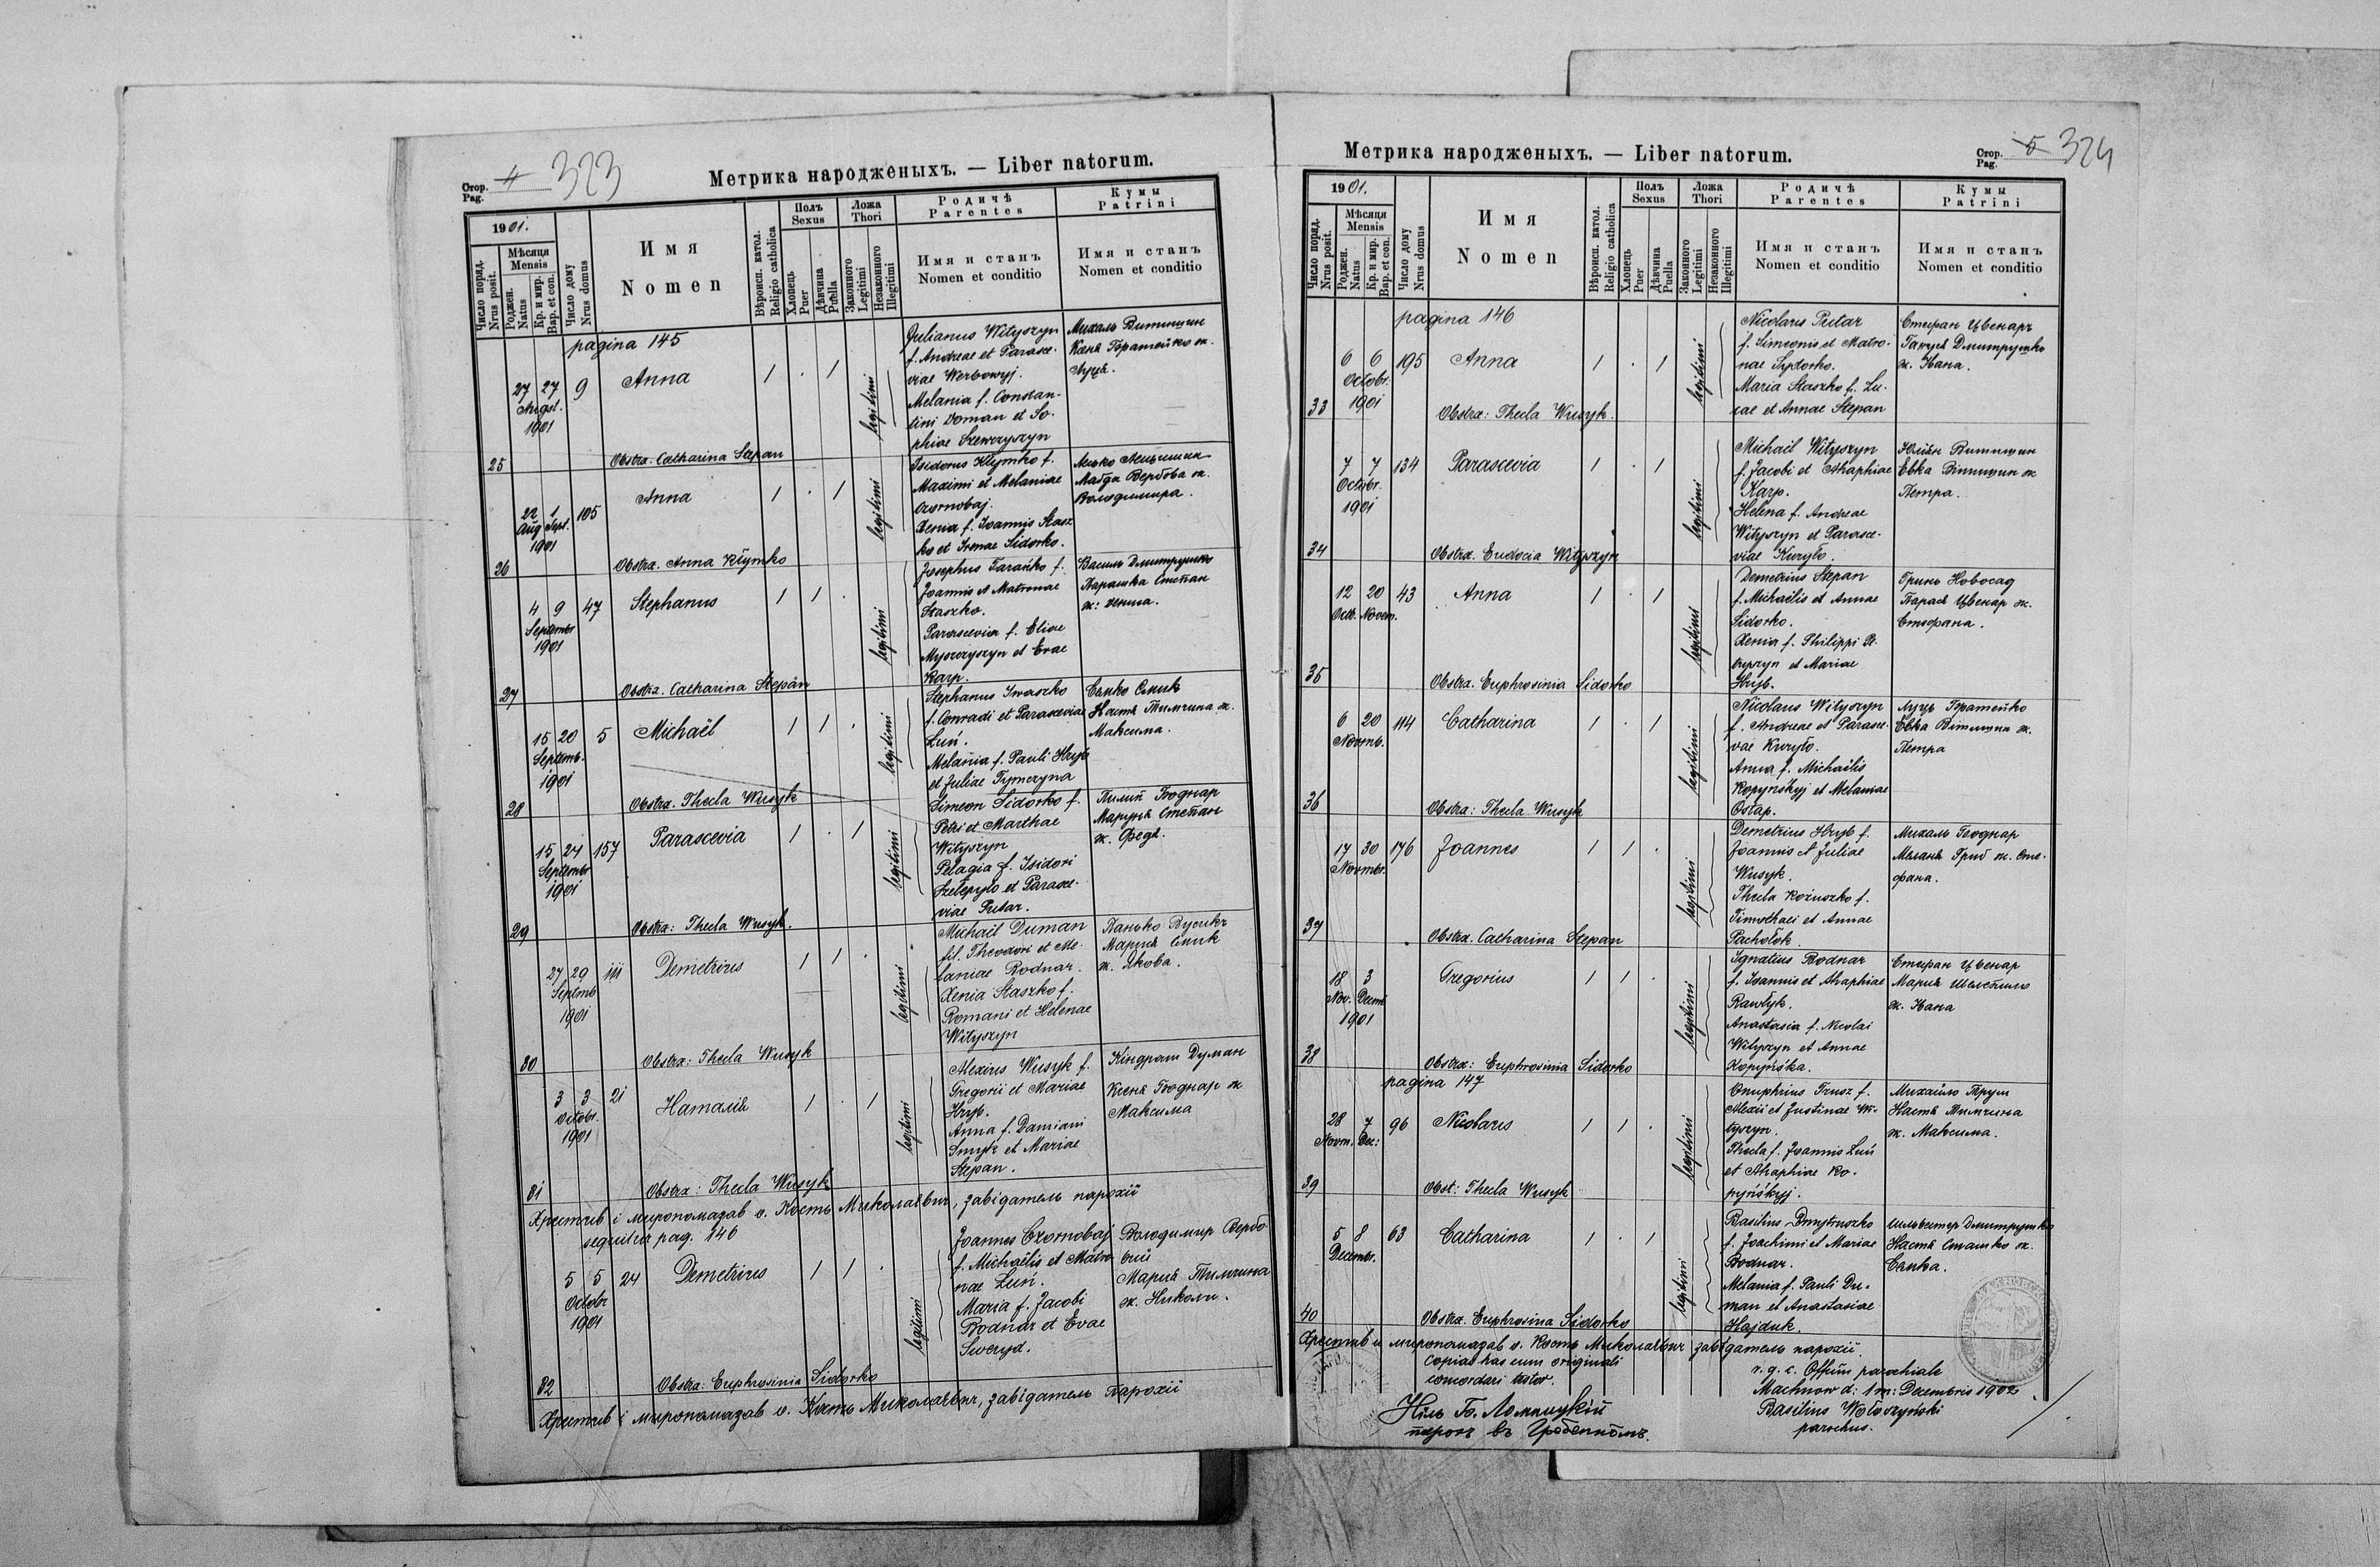 Стор.
Pag.
4 323
Метрика народженыхъ. — Liber natorum.
1901.
Число поряд.
Nrus posit.
Мѣсяця
Mensis
Роджен.
Natus
Кр. и мир.
Bap. et con.
Число дому
Nrus domus
Имя
Nomen
Вѣроисп. катол.
Religio catholica
Полъ
Sexus
Хлопець
Puer
Дѣвчина
Puella
Ложа
Thori
Законного
Legitimi
Незаконного
Illegitimi
Родичѣ
Parentes
Имя и станъ
Nomen et conditio
Кумы
Patrini
Имя и станъ
Nomen et conditio
pagina 145
25
27 27 9
Augst.
1901
Anna
1 . 1
legitimi
Obstx. Catharina Stepan
Julianus Wityszyn
f. Andreae et Parasce-
viae Werbowyj.
Melania f. Constan-
tini Doman et So-
phiae Szewczyszyn
Михаль Витишин
Ксеня Боратейко ж.
Луця.
26
22 1 105
Aug Sept.
1901
Anna
1 . 1
legitimi
Obstx. Anna Klymko
Isidorus Klymko f.
Maximi et Melaniae
Czornobaj.
Xenia f. Ioannis Stasz
ko et Irenae Sidorko.
Магда Вербова ж.
Володимира.
27
4 9 47
Septembr
1901
Stephanus
1 1 .
legitimi
Obstx. Catharina Stepan
Josephus Tarańko f.
Joannis et Matronae
Staszko.
Parascevia f. Eliae
Myszczyszyn et Evae
Karp.
Василь Дмитрушко
Парашка Степан
28
15 20 5
Septemb.
1901
Michaël
1 1 .
legitimi
Obstx. Thecla Wusyk
Stephanus Iwaszko
f. Conradi et Parasceviae
Łuń.
Melania f. Pauli Hryb
et Juliae Tymczyna
Сенко Смик
Настя Тимчина ж.
Максима.
29
15 24 157
Septembr
1901
Parascevia
1 . 1
legitimi
Obstx: Thecla Wusyk.
Simeon Sidorko f.
Petri et Marthae
Wityszyn
Pelagia f. Isidori
Szelepyło et Parasce-
viae Putar.
Пилип Боднар
Маруня Степан
ж. Федя.
30
27 29 111
Septmb
1901
Demetrius
1 1 .
legitimi
Obstx: Thecla Wusyk
Michail Duman
fil. Theodori et Me-
laniae Bodnar.
Xenia Staszko f.
Romani et Helenae
Wityszyn
Панько Вусикъ
Мария Смик
ж. Якова.
31
3 3 21
Octobr.
1901
Наталія
1 . 1
legitimi
Obstx: Thecla Wusyk
Alexius Wusyk f.
Gregorii et Mariae
Hryb.
Anna f. Damiani
Smyk et Mariae
Stepan.
Кіндрат Думан
Ксеня Боднар ж
Максима
Хрестив і миропомазав о. Кость Миколаєвич, завідатель парохії
sequitur pag. 146
32
5 5 24
Octobr
1901
Demetrius
1 1 .
legitimi
Obstx: Euphrosinia Sidorko
Joannes Czornobaj
f. Michaëlis et Matro-
nae Łuń.
Maria f. Jacobi
Bodnar et Evae
Sweryd.
Володимир Вербо-
вий
Мария Тимчина
ж. Николи.
Хрестив і миропомазав о. Кость Миколаєвич, завідатель парохії
Стор.
Pag.
5 324
Метрика народженыхъ. — Liber natorum.
1901.
Число поряд.
Nrus posit.
Мѣсяця
Mensis
Роджен.
Natus
Кр. и мир.
Bap. et con.
Число дому
Nrus domus
Имя
Nomen
Вѣроисп. катол.
Religio catholica
Полъ
Sexus
Хлопець
Puer
Дѣвчина
Puella
Ложа
Thori
Законного
Legitimi
Незаконного
Illegitimi
Родичѣ
Parentes
Имя и станъ
Nomen et conditio
Кумы
Patrini
Имя и станъ
Nomen et conditio
pagina 146
33
6 6 195
Octobr.
1901
Anna
1 . 1
legitimi
Obstx: Thecla Wusyk.
Nicolaus Putar
f. Simeonis et Matro-
nae Sydorko.
Maria Staszko f. Lu-
cae et Annae Stepan
Стефан Цвенарг
Гануся Дмитрушко
ж. Ивана.
34
7 7 134
Octobr.
1901
Parascevia
1 . 1
legitimi
Obstx. Eudocia Wityszyn
Michail Wityszyn
f. Jacobi et Ahaphiae
Karp.
Helena f. Andreae
Wityszyn et Parasce-
viae Kuryło.
Юліян Витишин
Евка Витишин ж
Петра.
35
12 20 43
Octb. Novem.
Anna
1 . 1
legitimi
Obstx. Euphrosinia Sidorko
Demetrius Stepan
f. Michaëlis et Annae
Sidorko.
Xenia f. Philippi Pe-
tryszyn et Mariae
Hryb.
Гринь Новосад
Парася Цвенар ж.
Стефана.
36
6 20 114
Novmb.
Catharina
1 . 1
legitimi
Obstx: Thecla Wusyk
Nicolaus Wityszyn
f. Andreae et Parasce-
vae Kuryło.
Anna f. Michaëlis
Kopyńskyj et Melaniae
Ostap.
Луць Боратейко
Евка Витишин ж.
Петра
37
17 30 176
Novmbr.
Joannes
1 1 .
legitimi
Obstx. Catharina Stepan
Demetrius Hryb f.
Joannis et Juliae
Wusyk.
Thecla Kożuszko f.
Timothaei et Annae
Pachołok.
Михаль Боднар
Меланя Гриб ж. Сте-
фана.
38
18 3
Nov. Decmb
1901
Gregorius
1 1 .
legitimi
Obstx: Euphrosinia Sidorko
Ignatius Bodnar
f. Ioannis et Ahaphiae
Rawłyk.
Anastasia f. Nicolai
Wityszyn et Annae
Kopyńska.
Стефан Цвенар
Мария Шелепило
ж. Ивана
pagina 147
39
28 7 96
Novm. Dec:
Nicolaus
1 1 .
legitimi
Obst: Thecla Wusyk
Onuphrius Trusz f.
Alexii et Justinae Wi-
tyszyn.
Thecla f. Joannis Łuń
et Ahaphiae Ko-
pyńskyj.
Михайло Труш
Настя Тимчина
ж. Максима.
40
5 8 63
Decembr.
Catharina
1 . 1
legitimi
Obstx. Euphrosina Sidorko
Basilius Dmytruszko
f. Joachimi et Mariae
Bodnar.
Melania f. Pauli Du-
man et Anastasiae
Hajduk.
Сильвестер Дмитрушко
Настя Сташко ж.
Сенька.
Хрестив и миропомазав о. Кость Миколаєвич завідатель парохії.
Copias has cum originali
concordari testor.
r. g. c. Offium parochiale
Machnow d: 1 m: Decembris 1902
Basilius Wołoszyński
parochus.
Ниль Б. Ломницкій
парох въ